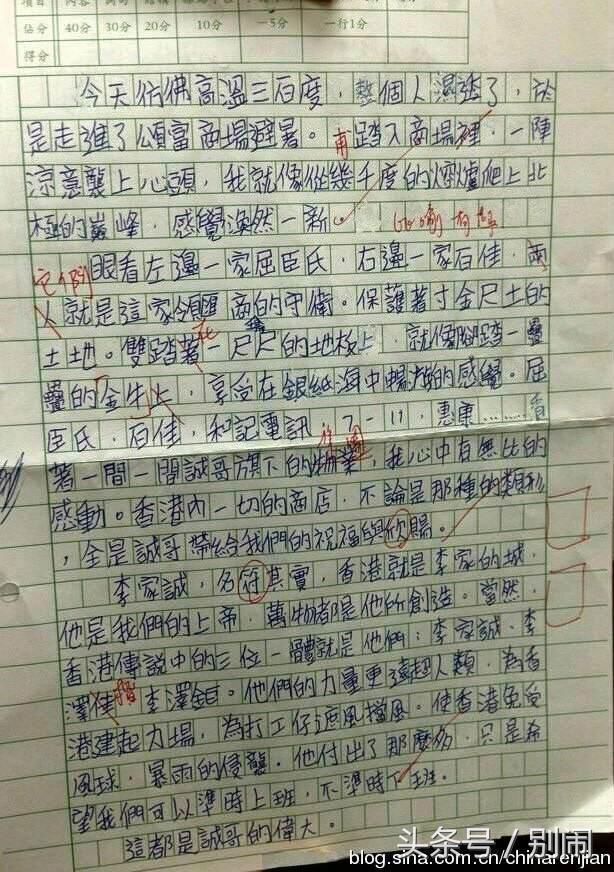 項目
佔分 40分 30分 20分 10分 -5分 一行1分
得分
今天彷彿高溫三百度，整個人濕透了，於
是走進了頌富商場避暑。甫踏入商場裡，一陣
涼意襲上心頭，我就像從幾千度的熔爐爬上北
極的巔峰，感覺渙然一新。
它們
眼看左邊一家屈臣氏，右邊一家百佳，兩
人就是這家領匯商的守衛。保護著寸金尺土的
土地。雙踏著一尺尺的地板上，就像腳踏一疊
疊的金牛上，享受在銀紙海中暢游的感覺。屈
臣氏，百佳，和記電訊，7-11，惠康……看
著一間一間誠哥旗下的物業，我心中有無比的
感動。香港內一切的商店，不論是那種的類形
，全是誠哥帶給我們的祝福與欣賜。
李家誠，名符其實，香港就是李家的城，
他是我們的上帝，萬物都是他所創造。當然，
香港傳說中的三位一體就是他們：李家誠，李
澤佳楷李澤鉅。他們的力量更遠超人類，為香
港建起力場，為打工仔遮風擋風。使香港免受
風球，暴雨的侵襲。他付出了那麼多，只是希
望我們可以準時上班，不準時下班。
這都是誠哥的偉大。
头条号／别闹
blog.sina.com.cn/chinarenjian